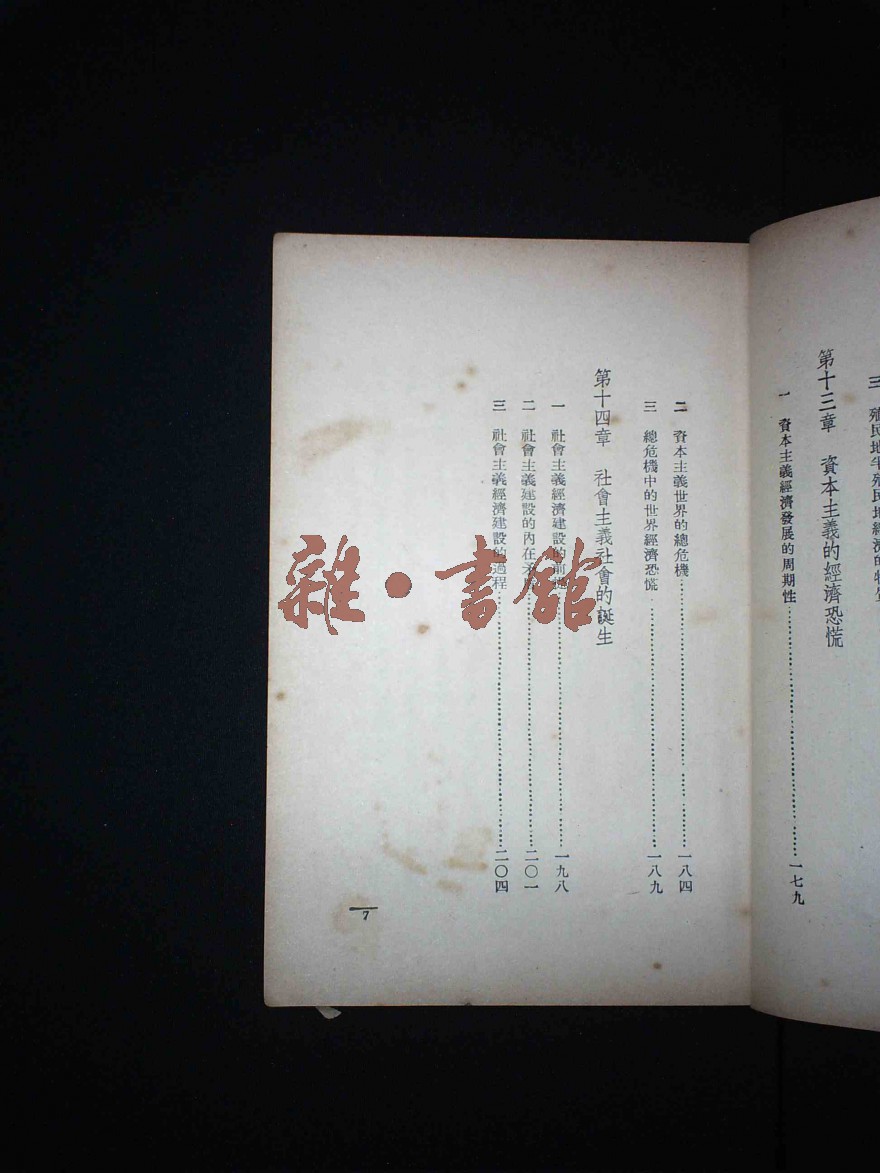 三 殖民地半殖民地經濟的特
第十三章 資本主義的經濟恐慌
一 資本主義經濟發展的周期性……一七九
二 資本主義世界的總危機……一八四
三 總危機中的世界經濟恐慌……一八九
第十四章 社會主義社會的誕生
一 社會主義經濟建設的前……一九八
二 社會主義建設的內在……二〇一
三 社會主義經濟建設的過程……二〇四
7
雜·書館